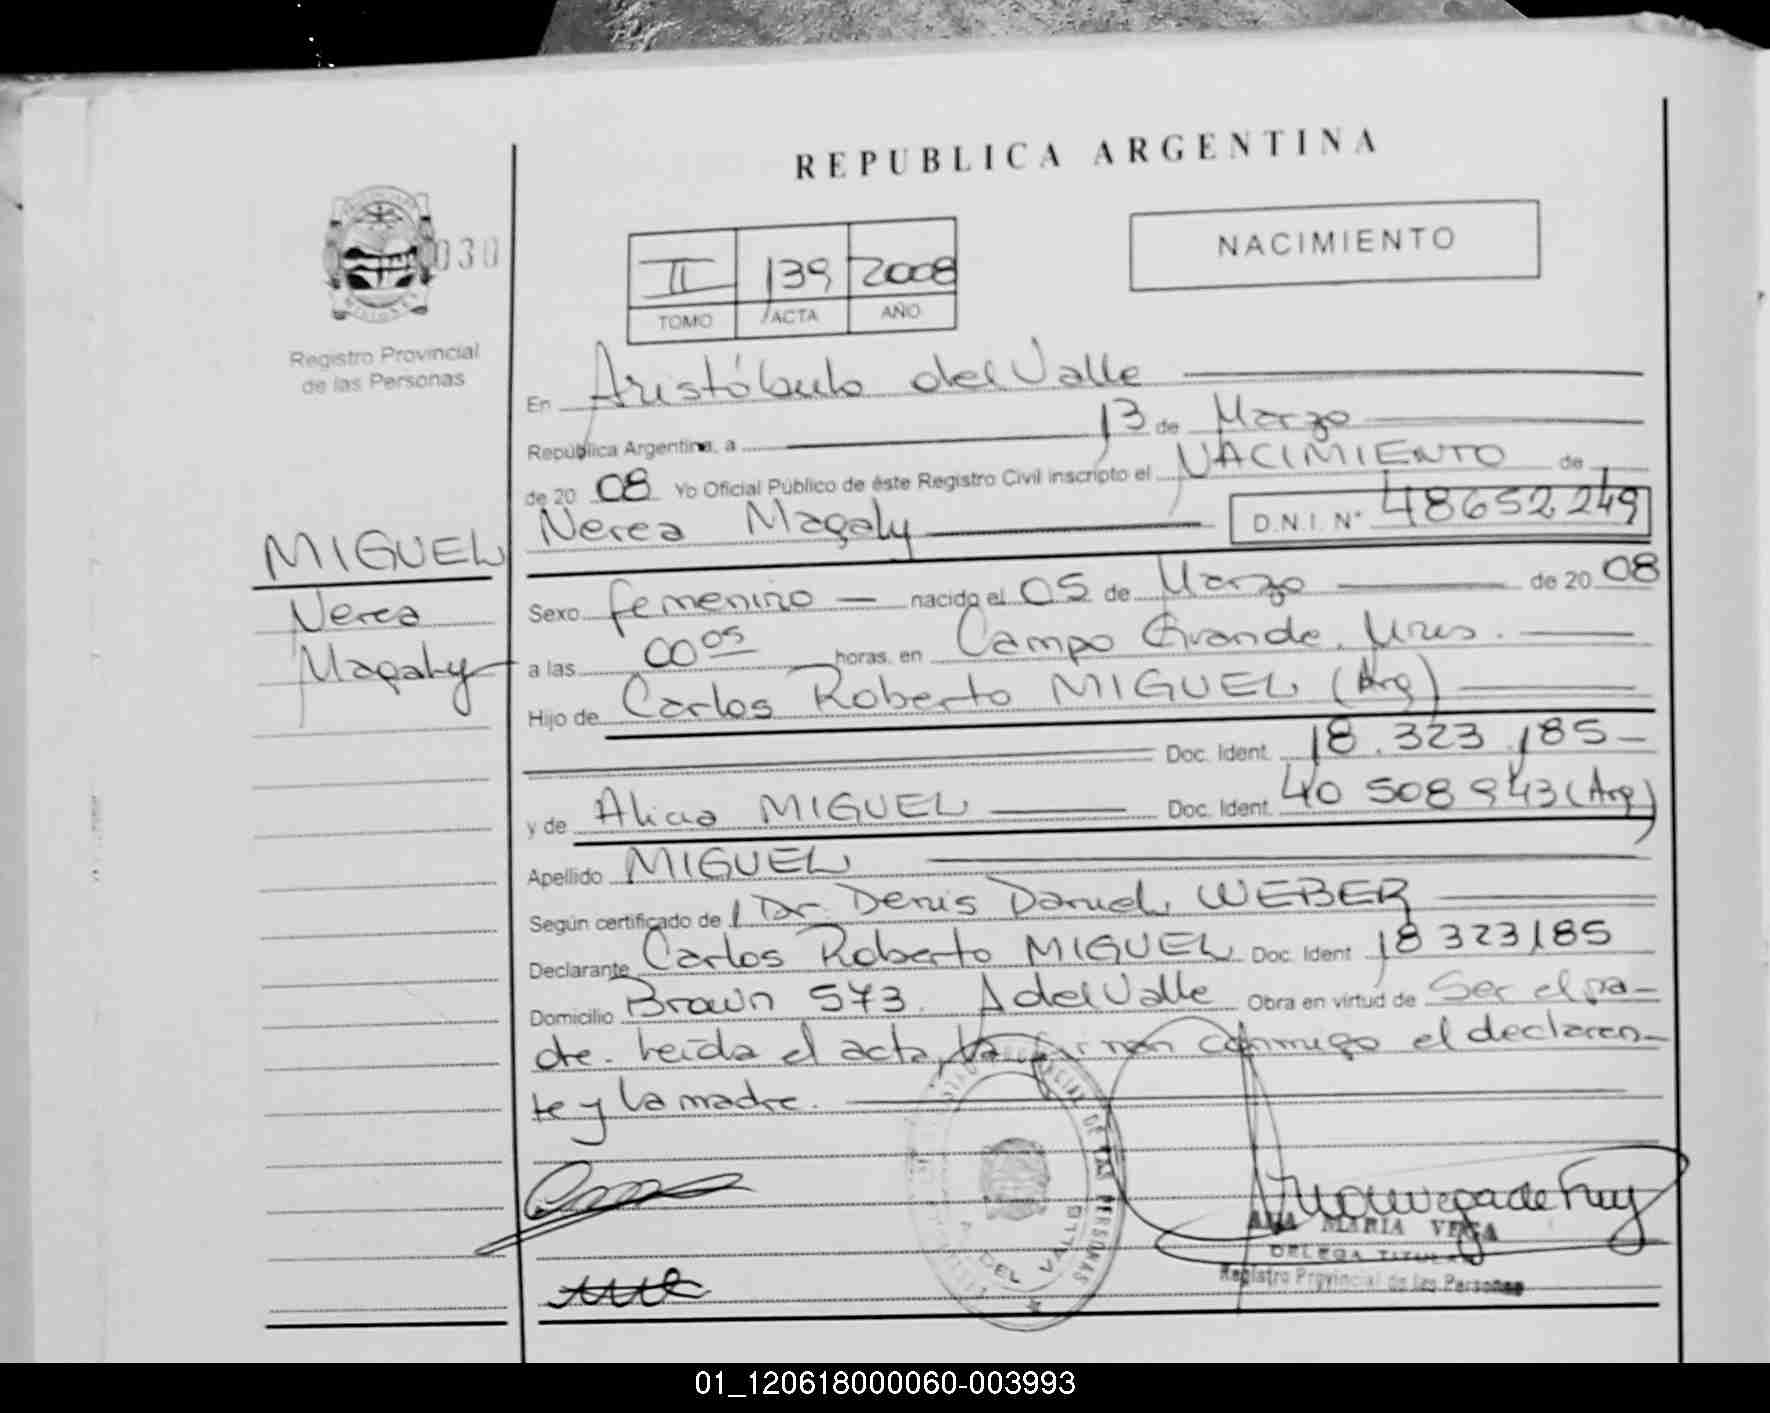 REPUBLICA ARGENTINA
030
NACIMIENTO
II 139 2008
TOMO ACTA AÑO
Registro Provincial
de las Personas
En Aristóbulo del Valle
República Argentina, a 13 de Marzo
de 20 08 Yo Oficial Público de éste Registro Civil inscripto el NACIMIENTO de
Nerea Magaly D.N.I. N° 48652249
MIGUEL
Nerea
Magaly
Sexo femenino nacido el 05 de Marzo de 20 08
a las 00 05 horas, en Campo Grande, Mnes.
Hijo de Carlos Roberto MIGUEL (Arg)
Doc. Ident. 18.323.185
y de Alicia MIGUEL Doc. Ident. 40 508 943 (Arg)
Apellido MIGUEL
Según certificado de Dr. Denis Daniel WEBER
Declarante Carlos Roberto MIGUEL Doc. Ident 18323185
Domicilio Brown 573. A del Valle Obra en virtud de Ser el pa-
dre. Leída el acta, la firman conmigo el declaran-
te y la madre.
ANA MARIA VEGA
DELEGA TITULAR
Registro Provincial de las Personas
DE LAS PERSONAS
DEL VALLE
01_120618000060-003993